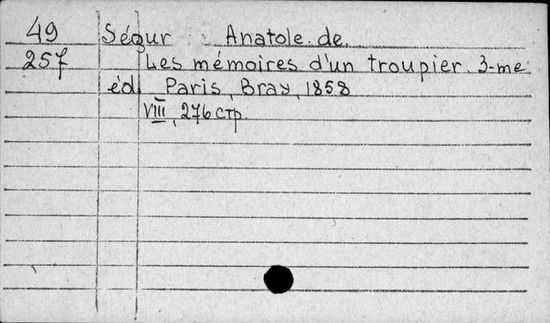 49 Ségur Anatole de.
257 Les mémoires d'un troupier. 3-me
éd. Paris, Bray, 1858
VIII, 276 стр.